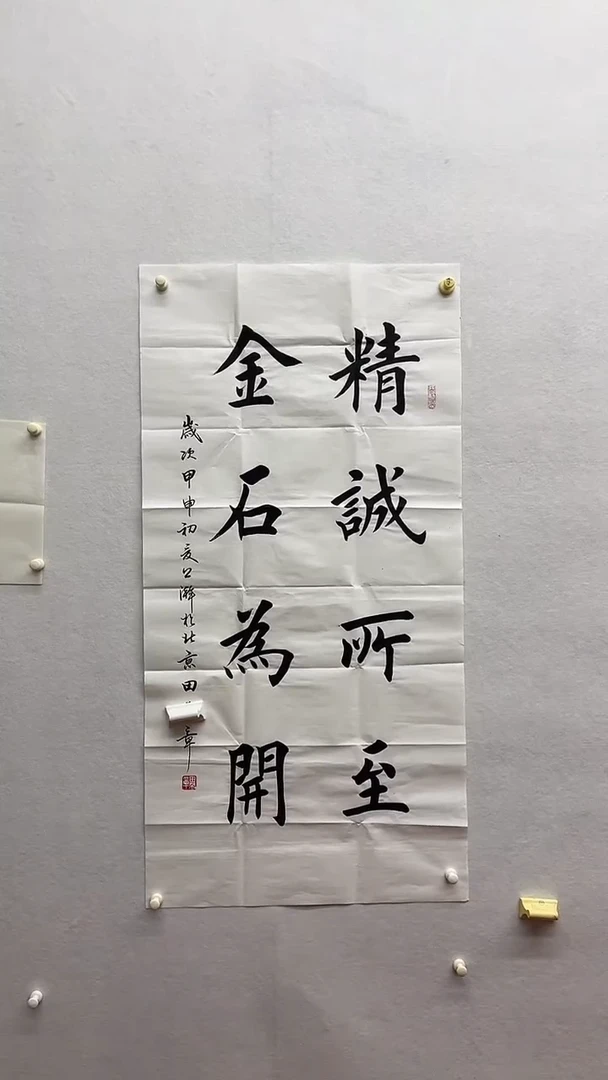 精誠所至
金石為開
歲次甲申初夏 於北京田 章